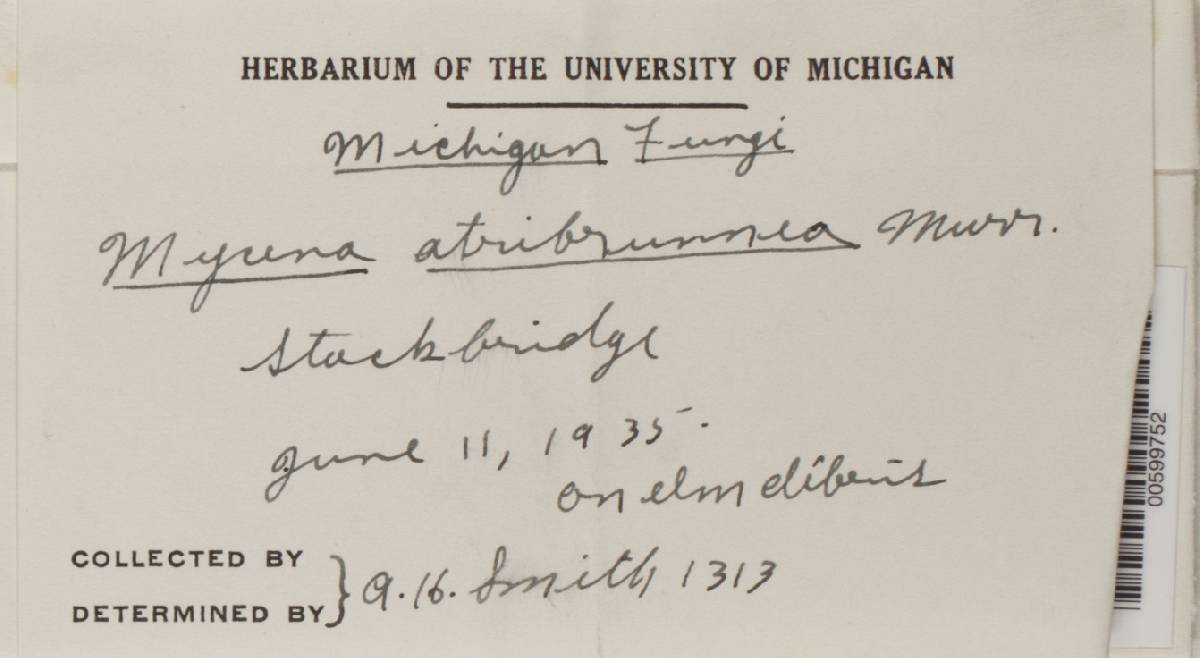 HERBARIUM OF THE UNIVERSITY OF MICHIGAN
Michigan Fungi
Mycena atribrunnea Murr.
Stockbridge
June 11, 1935.
on elm debris
COLLECTED BY
DETERMINED BY } A. H. Smith 1313
00599752